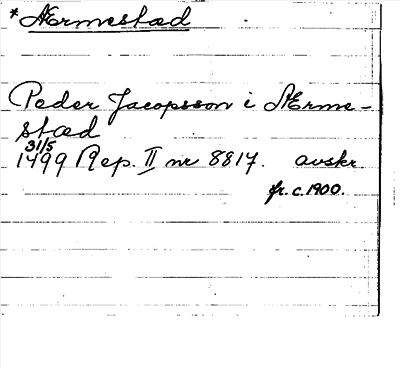 *Ærmestæd
Peder Jacopsson i Ærme-
stæd
31/5
1499 Rep. II nr 8817. avskr
fr. c. 1900.